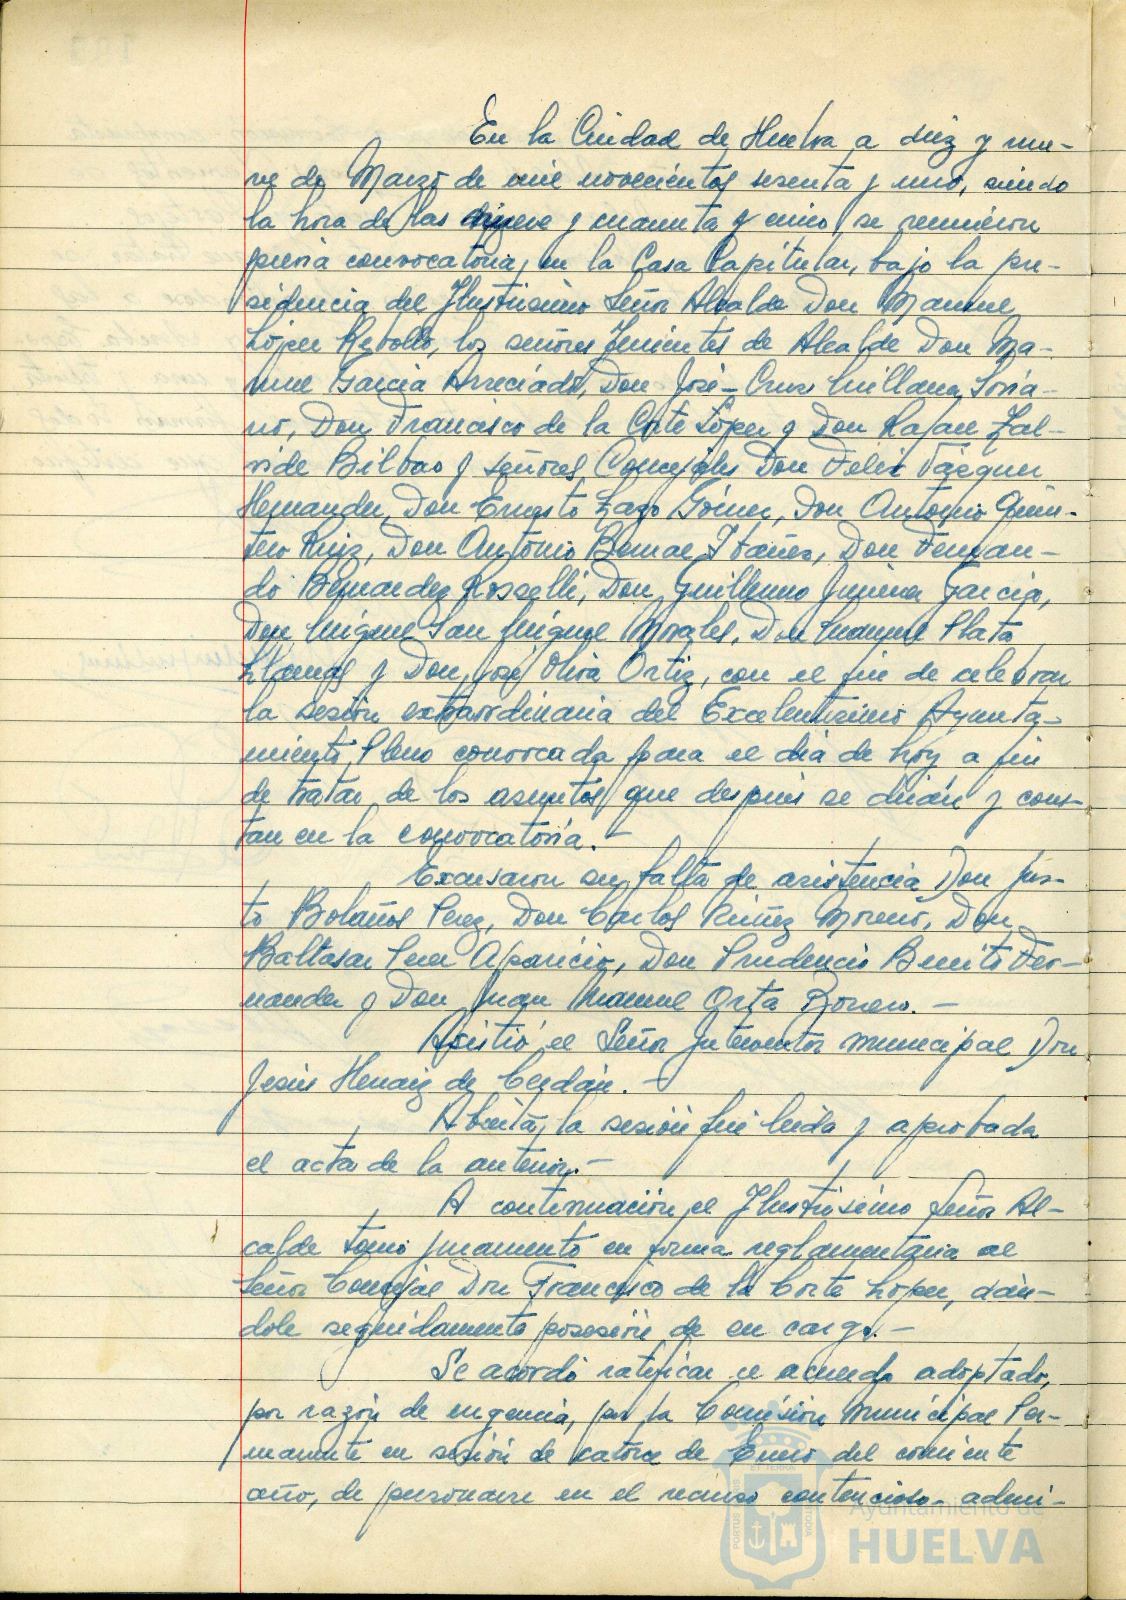 En la Ciudad de Huelva a diez y nue-
ve de Marzo de mil novecientos sesenta y uno, siendo
la hora de las y cuarenta y cinco, se reunieron
previa convocatoria, en la Casa Capitular, bajo la pre-
sidencia del Ilustrísimo Señor Alcalde Don Manuel
López Rebollo, los señores Tenientes de Alcalde Don Ma-
nuel Garcia Arreciado, Don José-Cruz Quillana Soria-
no, Don Francisco de la Corte López y Don Rafael Zal-
vide Bilbao y señores Concejales Don Felix Vázquez
Hernandez, Don Ernesto Lazo Gómez, Don Antonio Quin-
tero Ruiz, Don Antonio Bernal Ibañez, Don Fernan-
do Bernardez Rosselli, Don Guillermo Jimenez Garcia,
Don Miguel San Miguel Morales, Don Manuel Plata
Llamas y Don José Oliva Ortiz, con el fin de celebrar
la sesión extraordinaria del Excelentísimo Ayunta-
miento Pleno convocada para el dia de hoy a fin
de tratar de los asuntos que después se dirán y cons-
tan en la convocatoria.-
Excusaron su falta de asistencia Don Jus-
to Bolaños Perez, Don Carlos Núñez Moreno, Don
Baltasar Aparicio, Don Prudencio Benito Fer-
nandez y Don Juan Manuel Orta Borrero.-
Asistió el Señor Interventor municipal Don
Jesús de Cerdán.-
Abierta la sesión fué leida y aprobada
el acta de la anterior.-
A continuación el Ilustrísimo Señor Al-
calde tomó juramento en forma reglamentaria al
Señor Concejal Don Francisco de la Corte López, dán-
dole seguidamente posesión de su cargo.-
Se acordó ratificar el acuerdo adoptado,
por razón de urgencia, por la Comisión Municipal Per-
manente en sesión de catorce de Enero del corriente
año, de personarse en el recurso contencioso-admi-
PORTUS
ET TERRA
CUSTODIA
Ayuntamiento de
HUELVA